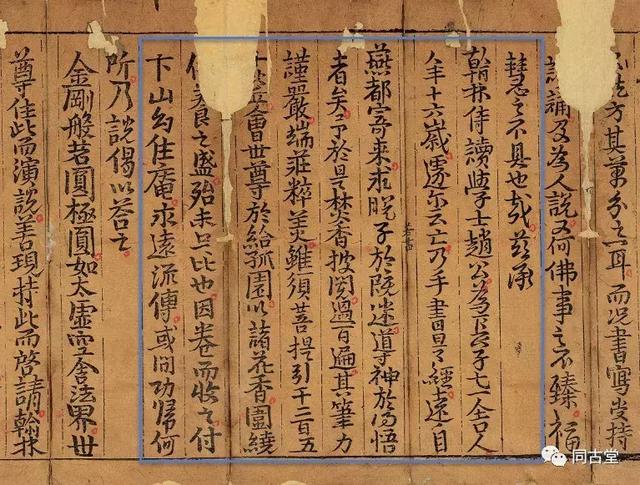 法方其萬分之一耳而況書寫受持
讀誦及為人說又何佛事之不臻福
慧之不具也哉茲承
翰林侍讀學士趙公為長子七一舍人
年十六歲遽尔云亡乃手書是經遠自
燕都寄來求脫子於既迷導神於悟
者矣予於是焚香披閱過百遍其筆力
謹嚴端莊粹美雖須菩提引千二百五
會世尊於給孤園以諸花香圍繞
養之盛殆未足比也因卷而收之付
下山幻住菴永遠流傳或問功歸何
所乃說偈以答之
金剛般若圓極圓如太虛空含法界世
尊住此而演說善現持此而啓請翰林
同古堂